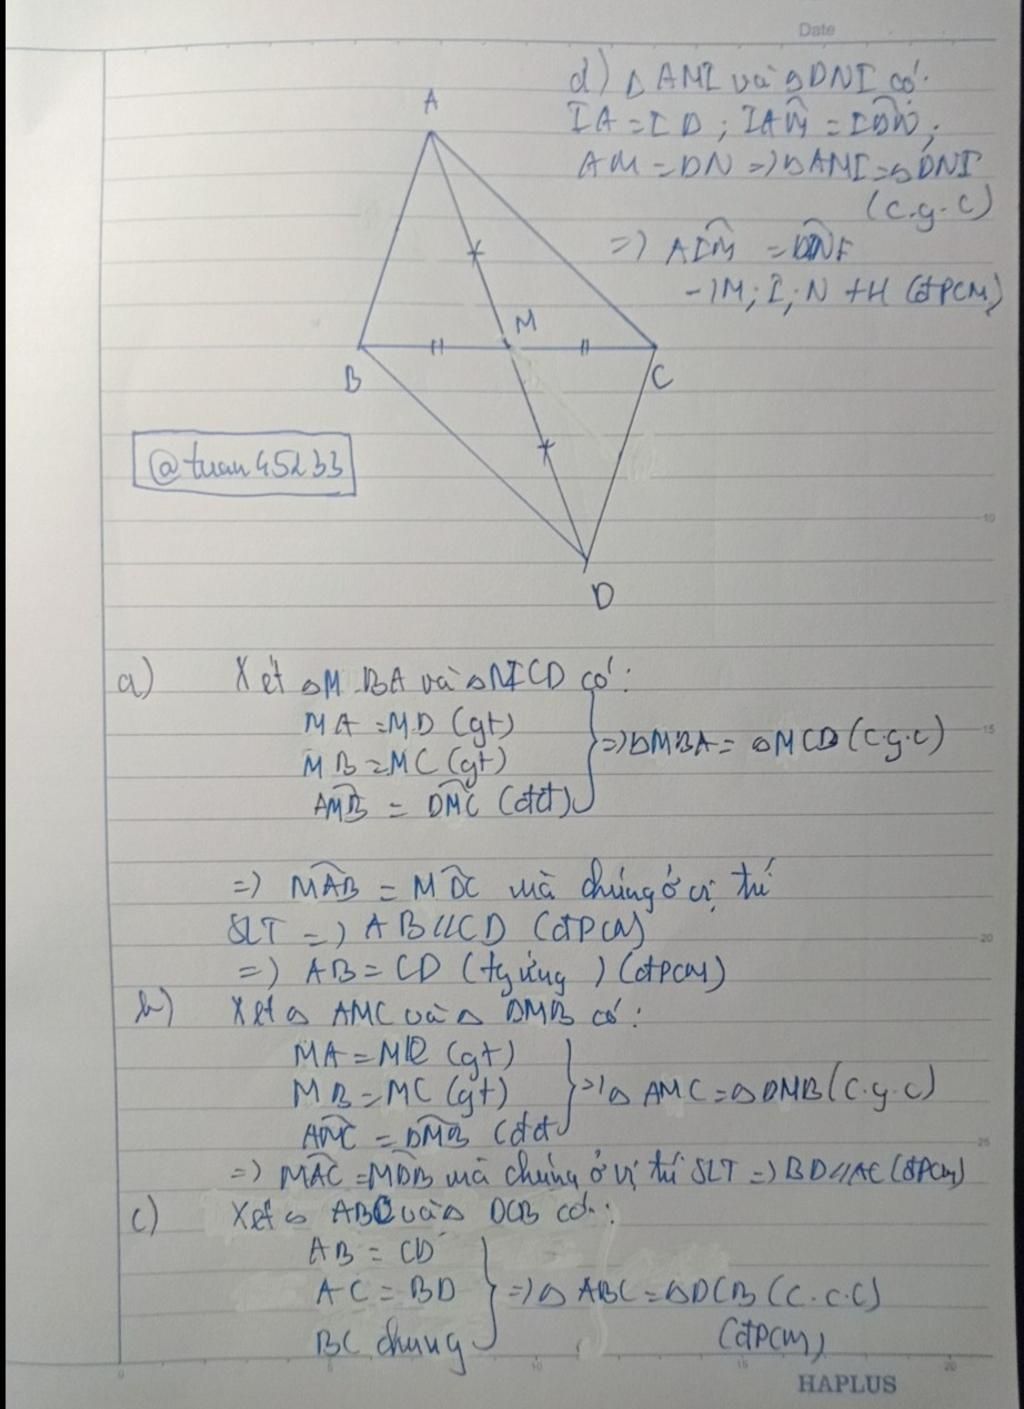 Date
d) △ AMI và △DNI có:
IA = ID ; IAM = IDN ;
AM = DN => △AMI = △DNI
(c.g.c)
=> AIM = DNI
-) M; I; N tH (đPCM)
A
M
B
C
@tuan45233
10
D
a) Xét △M BA và △MCD có:
MA = MD (gt)
MB = MC (gt)
AMB = DMC (đđ)
=> △MBA = △MCD (c.g.c)
15
=> MAB = MDC mà chúng ở vị trí
SLT => AB // CD (đPCM)
20
=> AB = CD (tg ứng) (đPCM)
b) Xét △ AMC và △ DMB có:
MA = MD (gt)
MB = MC (gt)
AMC = DMB (đđ
=> △ AMC = △DMB (c.g.c)
25
=> MAC = MDB mà chúng ở vị trí SLT => BD // AC (đPCM)
c) Xét △ ABC và △ DCB có:
AB = CD
AC = BD
BC chung
=> △ ABC = △DCB (c.c.c)
(đPCM)
0 5 10 15 20
HAPLUS